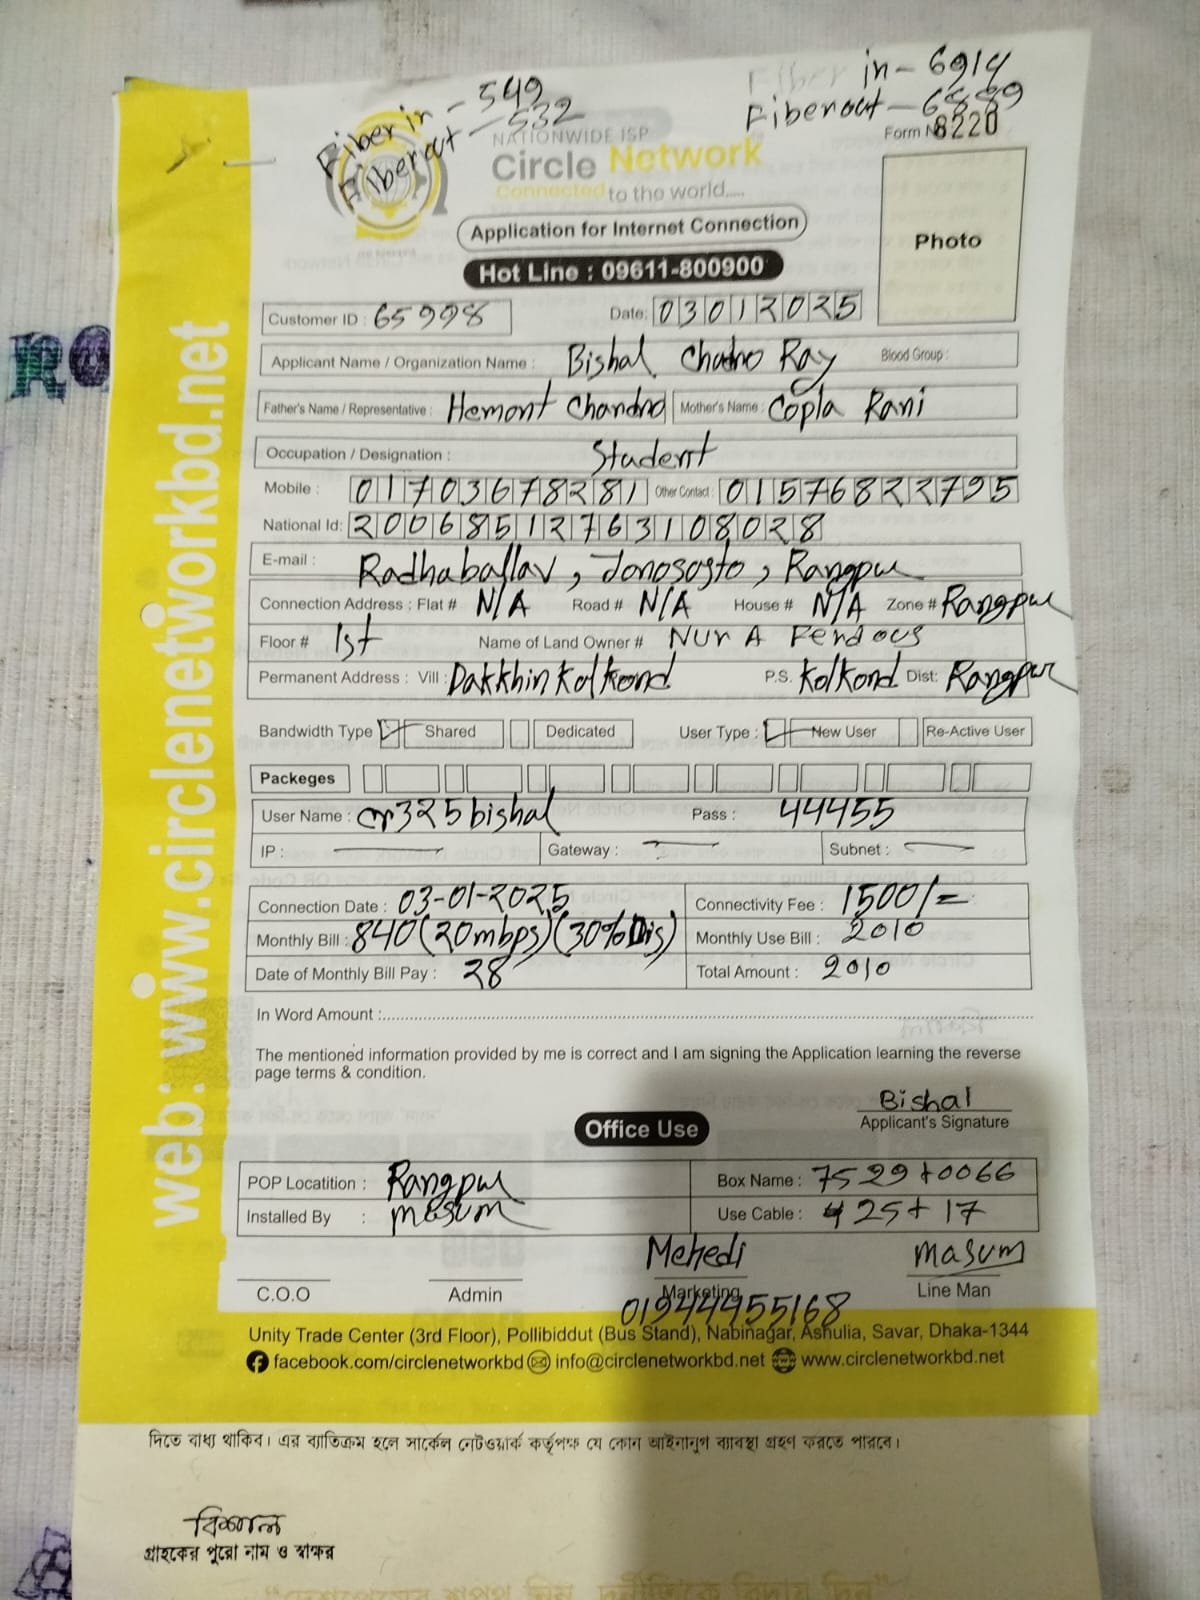 Fiber in - 549
Fiber out - 532
Fiber in - 6914
Fiber out - 6889
Form N 8220
NATIONWIDE ISP
Circle Network
Connected to the world.....
Application for Internet Connection
Photo
Hot Line : 09611-800900
Customer ID : 65998 Date: 03012025
Applicant Name / Organization Name : Bishal Chadno Ray Blood Group :
Father's Name / Representative : Hemont Chandra Mother's Name : Copla Rani
Occupation / Designation : Student
Mobile : 01703678281 Other Contact : 01576822795
National Id: 20068512763108028
E-mail : Radhaballav, Jonosogto, Rangpur
Connection Address : Flat # N/A Road # N/A House # N/A Zone # Rangpur
Floor # 1st Name of Land Owner # Nur A Ferdous
Permanent Address : Vill : Dakkhin Kolkond P.S. Kolkond Dist: Rangpur
Bandwidth Type Shared Dedicated User Type : New User Re-Active User
Packeges
User Name : cn325bishal Pass : 44455
IP : Gateway : Subnet :
Connection Date : 03-01-2025 Connectivity Fee : 1500/=
Monthly Bill : 840(20mbps)(30%Dis) Monthly Use Bill : 2010
Date of Monthly Bill Pay : 28 Total Amount : 2010
In Word Amount :
The mentioned information provided by me is correct and I am signing the Application learning the reverse
page terms & condition.
Bishal
Applicant's Signature
Office Use
POP Locatition : Rangpur Box Name : 7529+0066
Installed By : Masum Use Cable : 425+17
Mehedi Masum
C.O.O Admin Marketing Line Man
01944955168
Unity Trade Center (3rd Floor), Pollibiddut (Bus Stand), Nabinagar, Ashulia, Savar, Dhaka-1344
facebook.com/circlenetworkbd info@circlenetworkbd.net www.circlenetworkbd.net
web: www.circlenetworkbd.net
দিতে বাধ্য থাকিব। এর ব্যাতিক্রম হলে সার্কেল নেটওয়ার্ক কর্তৃপক্ষ যে কোন আইনানুগ ব্যাবস্থা গ্রহণ করতে পারবে।
বিশাল
গ্রাহকের পুরো নাম ও স্বাক্ষর